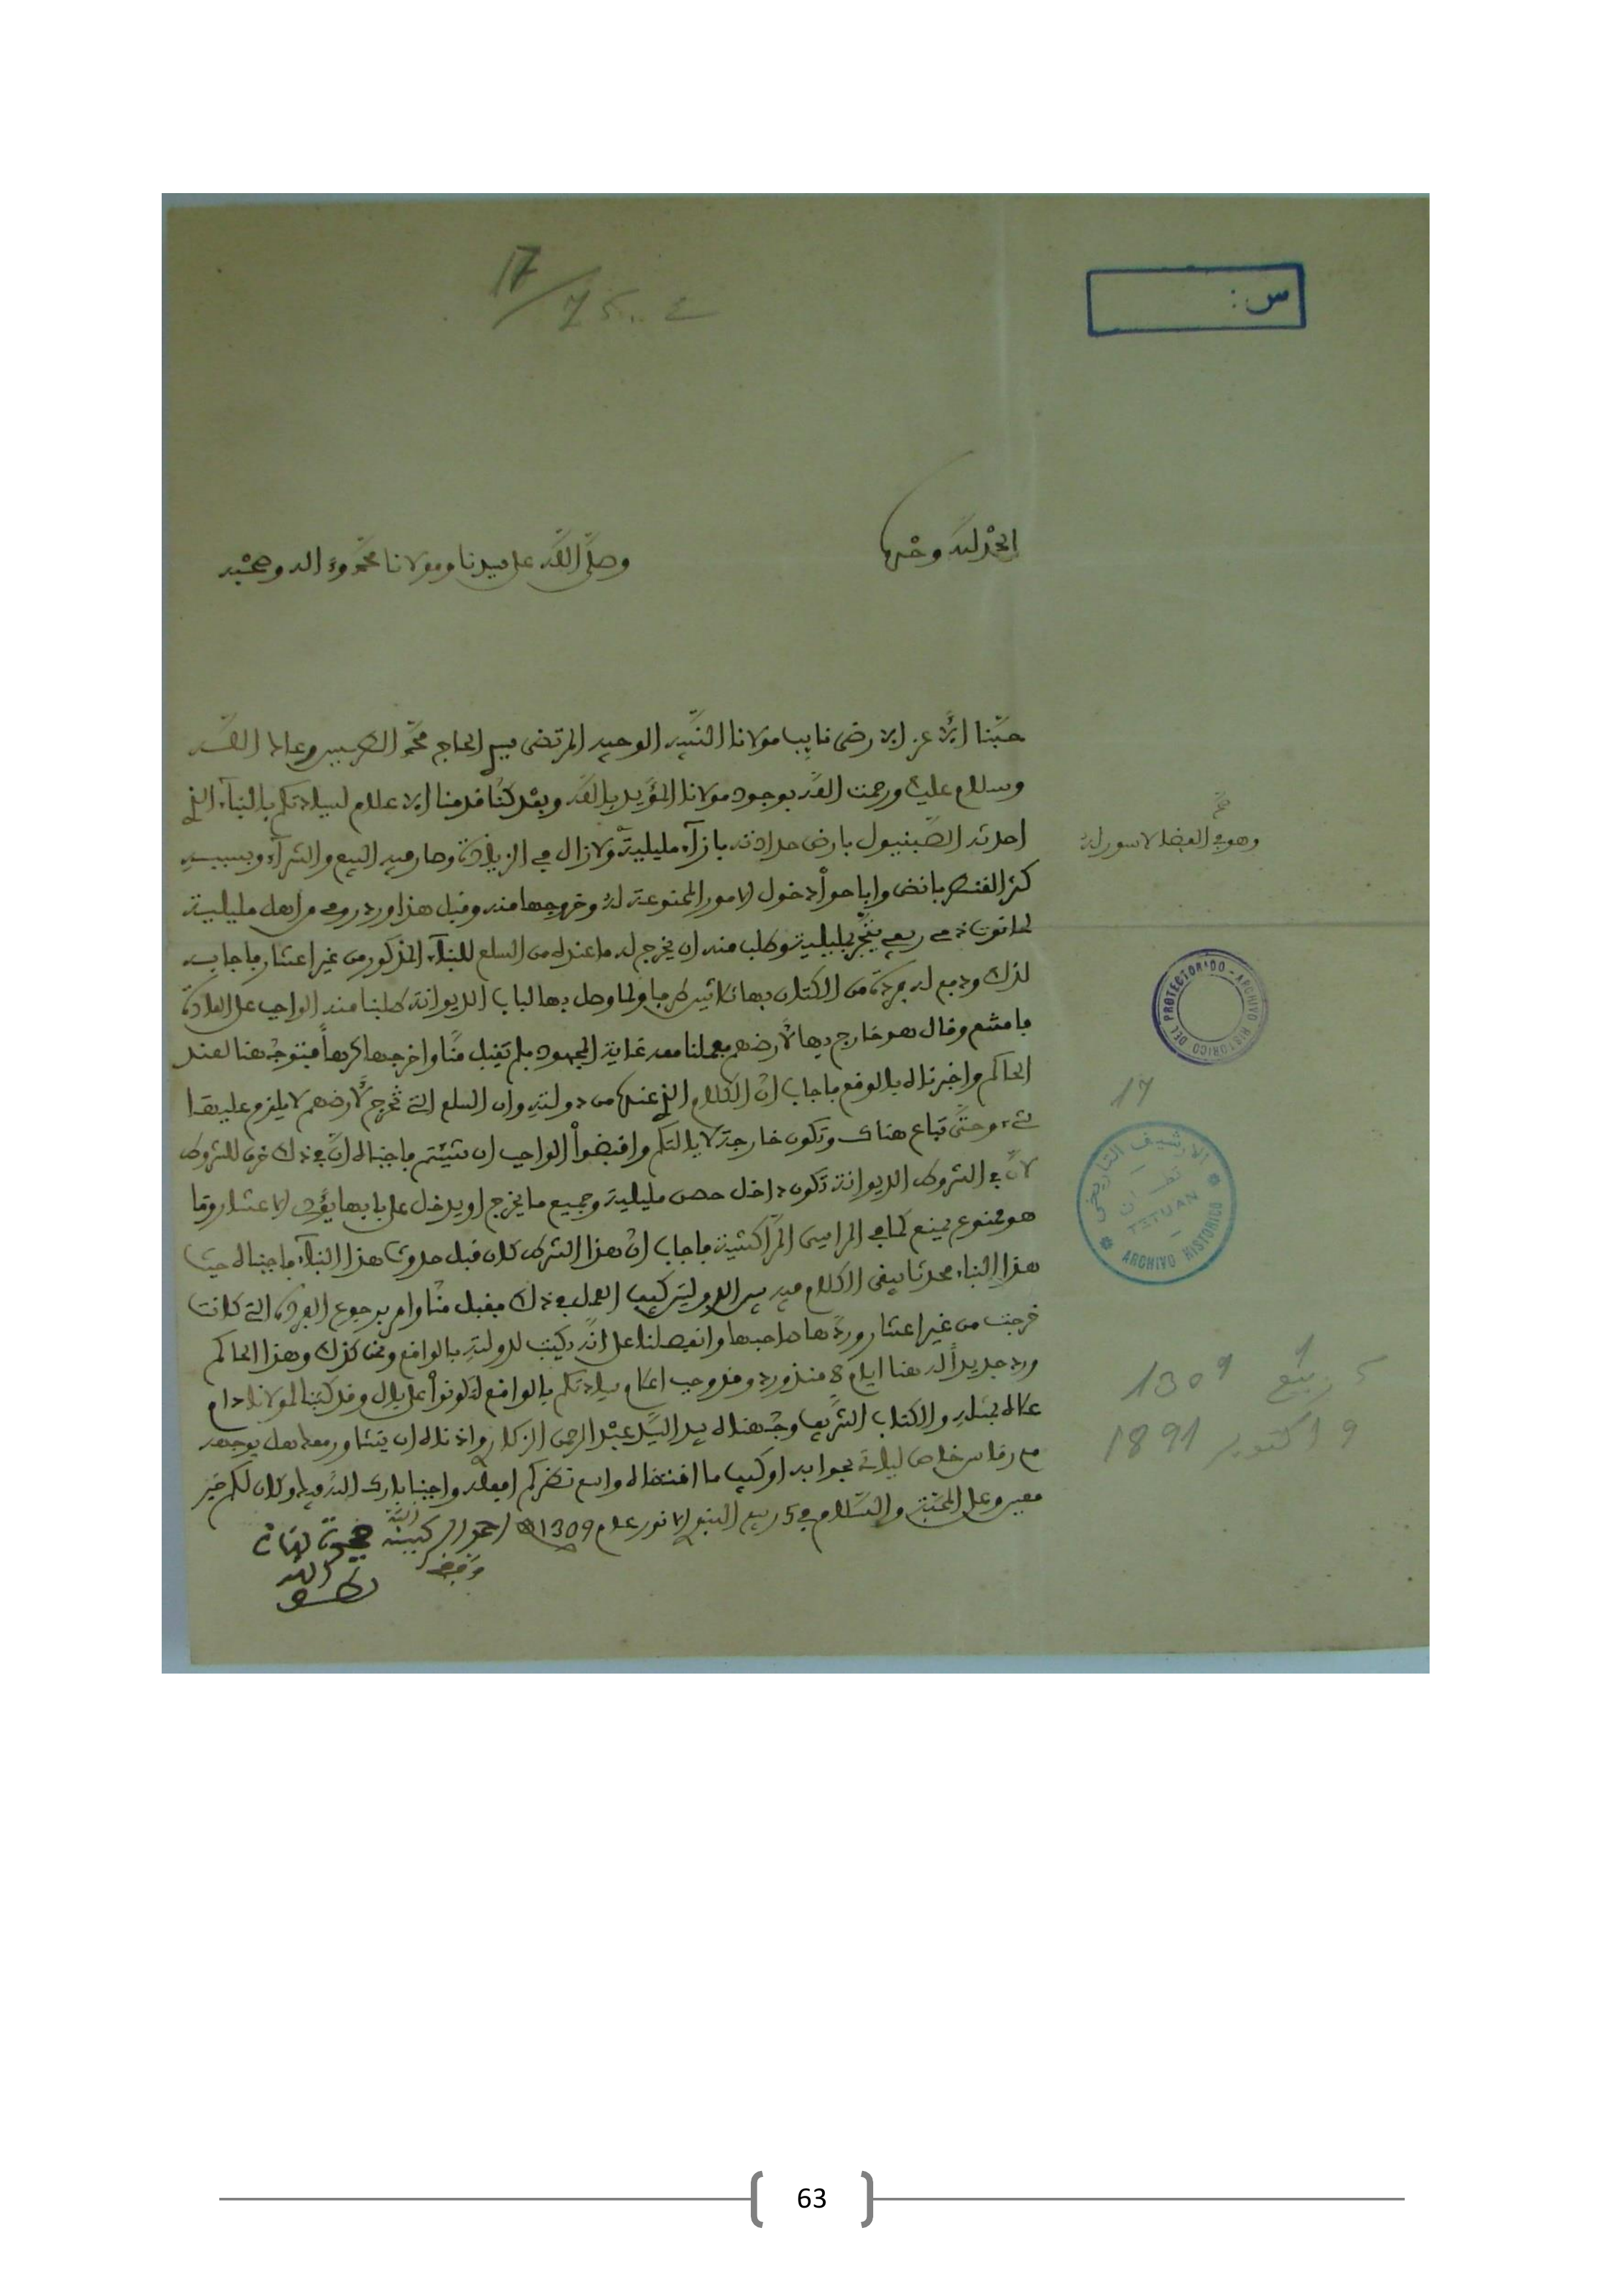 17/75..2
س:
الحمد لله وحده
وصلى الله على سيدنا ومولانا محمد وءاله وصحبه
محبنا الأعز الأرضى نايب مولانا النبيه الوجيه المرتضى سيدي الحاج محمد الطريس وعاك الله
وسلام عليك ورحمت الله بوجود مولانا المؤيد بالله وبعد كنا قدمنا الاعلام لسيادتكم بالبناء الذي
احدثه الصبنيول بارض حدادته بازآء مليلية ولازال في الزيادة وصار فيه البيع والشرآء وبسببه
وهو في الفضا لا سور له
صح
كثر الفنطربانض واباحوا دخول الامور الممنوعة له وخروجها منه وقبل هذا ورد رومي من اهل مليلية
لحانوت ذمي ريفي يتجر بمليلية وطلب منه ان يخرج له ما عنده من السلع للبنآء المذكور من غير اعشار فاجابه
لذلك ودفع له فردة من الكتان بها ثلاثين طرفا ولما وصل بها لباب الديوانة طلبنا منه الواجب على العادة
فامتنع وقال هو خارج بها لأرضهم فعملنا معه غاية المجهود فلم يقبل منا واخرجها كرها فتوجهنا لعند
الحاكم واخبرناه بالوقع فاجاب ان الكلام الذي عنده من دولته وان السلع التي تخرج لأرضهم لا يلزم عليها
شيء وحتى تباع هناك وتكون خارجة لايالتكم واقبضوا الواجب ان شئتم فاجبناه ان في ذلك خرق للشروط
لان في الشروط الديوانة تكون داخل حصن مليلية وجميع ما يخرج او يدخل على بابها يؤدي الاعشار وما
هو ممنوع يمنع كما في المراسى المراكشية فاجاب ان هذا الشرط كان قبل حدوث هذا البنآء فاجبناه حيث
هذا البناء محدثا يبقى الكلام فيه بين الدولتين كيف العمل في ذلك فقبل منا وامر برجوع الفردة التي كانت
خرجت من غير اعشار وردها صاحبها وانفصلنا على انه يكتب لدولته بالواقع ونحن كذلك وهذا الحاكم
ورد جديدا له هنا ايام 8 منذ ورد وقد وجب اعلام سيادتكم بالواقع لتكونوا على بال وقد كتبنا لمولانا دام
علاه بمثله والكتاب الشريف وجهناه بيد السيد عبد الرحمن الزكاري واذناه ان يتشاور معك هل يوجهه
مع رقاص خاص لياتي بجوابه او كيف ما اقتضاه واسع نظركم افعله واجبنا بارك الله فيك وكان لكم خير
معين وعلى المحبة والسلام في 5 ربيع النبوي الانور عام 1309
17
الارشيف التاريخي
تطوان
TETUAN
ARCHIVO HISTORICO
DEL PROTECTORADO - ARCHIVO HISTORICO
5 ربيع 1 1309
9 اكتوبر 1891
63